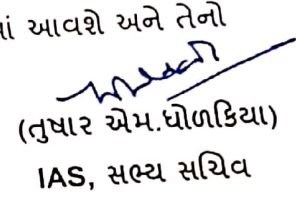 માં આવશે અને તેનો
(તુષાર એમ.ધોળકિયા)
IAS, સભ્ય સચિવ